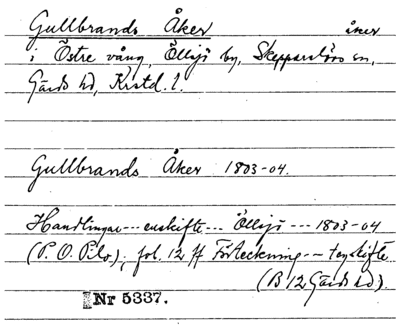 Gullbrands Åker åker
i Östre vång, Öllsjö by, Skepparslövs sn,
Gärds hd, Krstd. l.
Gullbrands Åker 1803-04.
Handlingar --- enskifte --- Öllsjö --- 1803-04
(P. O. Pilo); fol. 12 ff Förteckning -- torskifte
(B 12 Gärds hd).
Nr 5337.